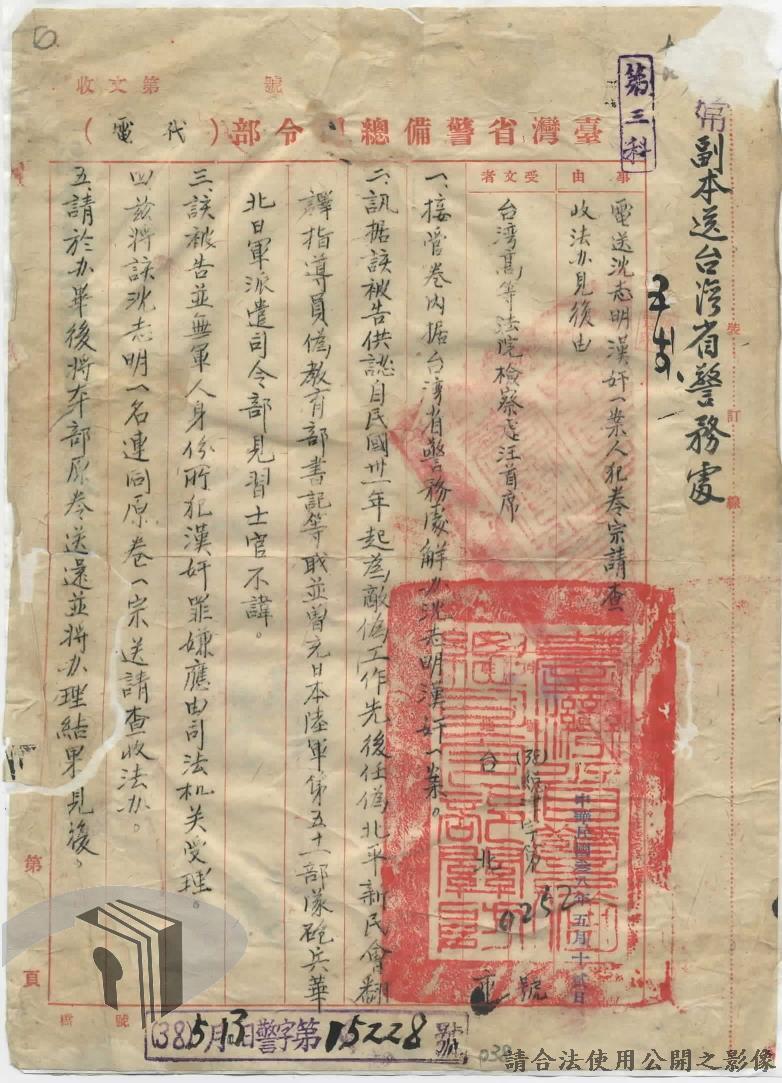 副本送台湾省警務處
裝訂線
第三科
收文第 號
臺灣省警備總司令部（代電）
事由
電送沈志明漢奸一案人犯卷宗請查
收法办見後由
受文者
台湾高等法院檢察處汪首席
中華民國叁八年五月十貳日
(38)
字第
0252
號
台北
一、接管卷內据台湾省警务處解办沈志明漢奸一案。
二、訊据該被告供認自民國卅一年起為敵偽工作先後任偽北平新民會翻
譯指導員偽教育部書記等職並曾充日本陸軍第五十一部隊砲兵華
北日軍派遣司令部見習士官不諱。
三、該被告並無軍人身份所犯漢奸罪嫌應由司法机关受理。
四、茲將該沈志明一名連同原卷一宗送請查收法办。
五、請於办畢後將本部原卷送還並將办理結果見復。
第 頁
檔號
(38)5月13日警字第15228號
請合法使用公開之影像